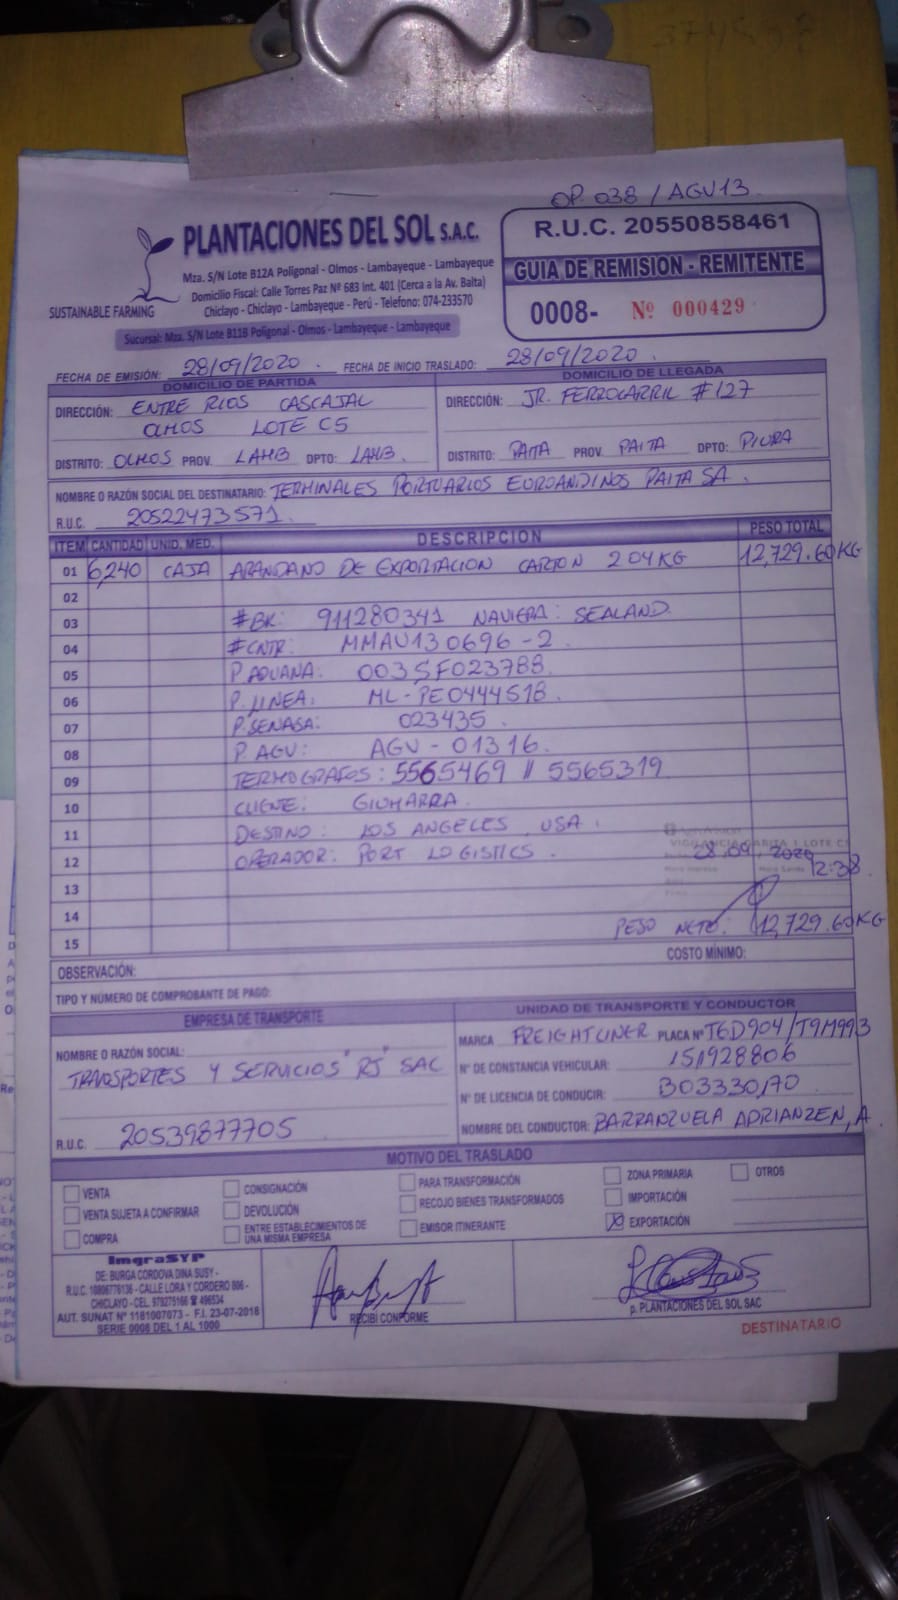 OP. 038 / AGV13
PLANTACIONES DEL SOL S.A.C.
Mza. S/N Lote B12A Poligonal - Olmos - Lambayeque - Lambayeque
Domicilio Fiscal: Calle Torres Paz Nº 683 Int. 401 (Cerca a la Av. Balta)
Chiclayo - Chiclayo - Lambayeque - Perú - Telefono: 074-233570
SUSTAINABLE FARMING
Sucursal: Mza. S/N Lote B11B Poligonal - Olmos - Lambayeque - Lambayeque
R.U.C. 20550858461
GUIA DE REMISION - REMITENTE
0008- Nº 000429
FECHA DE EMISIÓN: 28/09/2020. FECHA DE INICIO TRASLADO: 28/09/2020.
DOMICILIO DE PARTIDA
DIRECCIÓN: ENTRE RIOS CASCAJAL
OLMOS LOTE C5
DISTRITO: OLMOS PROV. LAMB DPTO: LAMB.
DOMICILIO DE LLEGADA
DIRECCIÓN: JR. FERROCARRIL #127
DISTRITO: PAITA PROV. PAITA DPTO: PIURA
NOMBRE O RAZÓN SOCIAL DEL DESTINATARIO: TERMINALES PORTUARIOS EUROANDINOS PAITA SA.
R.U.C. 20522473571.
ITEM CANTIDAD UNID. MED. DESCRIPCION PESO TOTAL
01 6,240 CAJA ARANDANO DE EXPORTACION CARTON 2.04KG 12,729.60KG
02
03 #BK: 911280341 NAVIERA: SEALAND.
04 #CNTR: MMAU130696-2.
05 P. ADUANA: 003SF023788.
06 P. LINEA: ML-PE0444518.
07 P. SENASA: 023435.
08 P. AGV: AGV-01316.
09 TERMOGRAFOS: 5565469 // 5565319
10 CLIENTE: GIUMARRA.
11 DESTINO: LOS ANGELES, USA.
12 OPERADOR: PORT LOGISTICS.
VIGILANCIA GARITA 1 LOTE C
28.09.2020
12:38
13
14
15 PESO NETO: 12,729.60KG
OBSERVACIÓN: COSTO MÍNIMO:
TIPO Y NÚMERO DE COMPROBANTE DE PAGO:
EMPRESA DE TRANSPORTE
NOMBRE O RAZÓN SOCIAL:
TRANSPORTES Y SERVICIOS "RJ" SAC
R.U.C. 20539877705
UNIDAD DE TRANSPORTE Y CONDUCTOR
MARCA FREIGHTLINER PLACA Nº T6D904/T9M993
N° DE CONSTANCIA VEHICULAR: 151928806
N° DE LICENCIA DE CONDUCIR: B03330170
NOMBRE DEL CONDUCTOR: BARRANZUELA ADRIANZEN, A.
MOTIVO DEL TRASLADO
VENTA CONSIGNACIÓN PARA TRANSFORMACIÓN ZONA PRIMARIA OTROS
VENTA SUJETA A CONFIRMAR DEVOLUCIÓN RECOJO BIENES TRANSFORMADOS IMPORTACIÓN
COMPRA ENTRE ESTABLECIMIENTOS DE UNA MISMA EMPRESA EMISOR ITINERANTE X EXPORTACIÓN
ImgraSYP
DE: BURGA CORDOVA DINA SUSY -
R.U.C. 10806776136 - CALLE LORA Y CORDERO 806 -
CHICLAYO - CEL. 979275166 ☎ 496534
AUT. SUNAT Nº 1181007073 - F.I. 23-07-2018
SERIE 0008 DEL 1 AL 1000
RECIBÍ CONFORME
p. PLANTACIONES DEL SOL SAC
DESTINATARIO